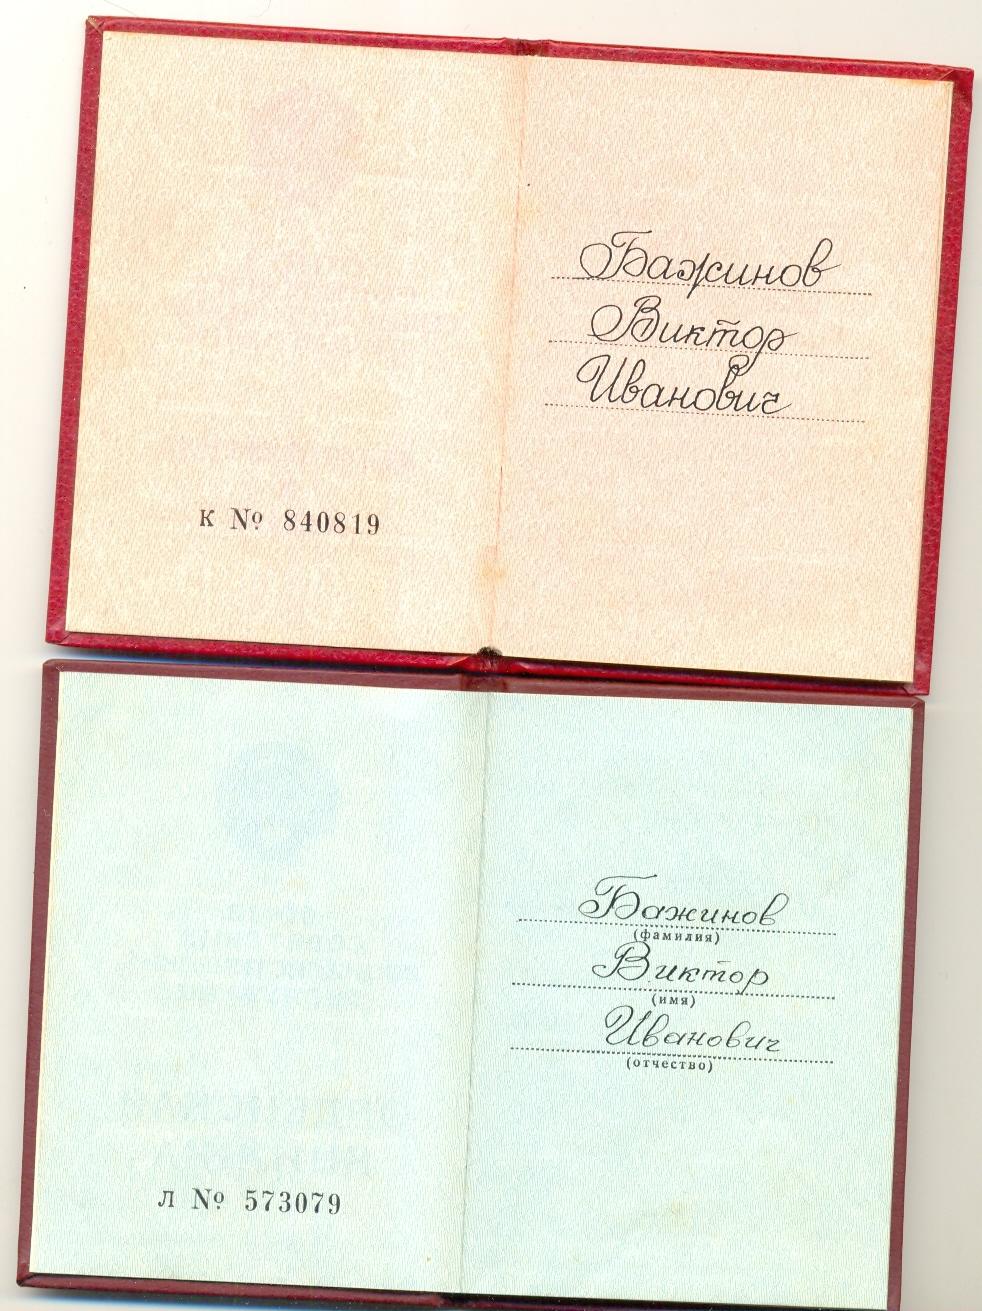 Бажинов
Виктор
Иванович
к № 840819
Бажинов
(фамилия)
Виктор
(имя)
Иванович
(отчество)
л № 573079